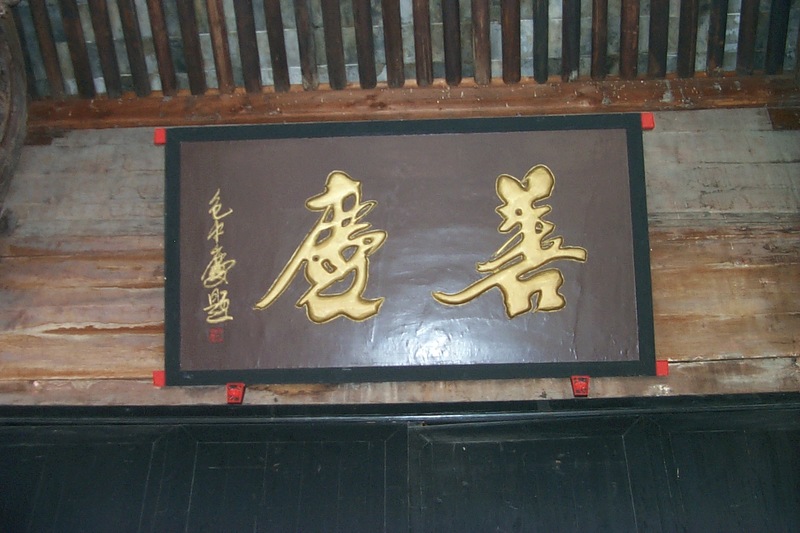 善慶
包中慶題